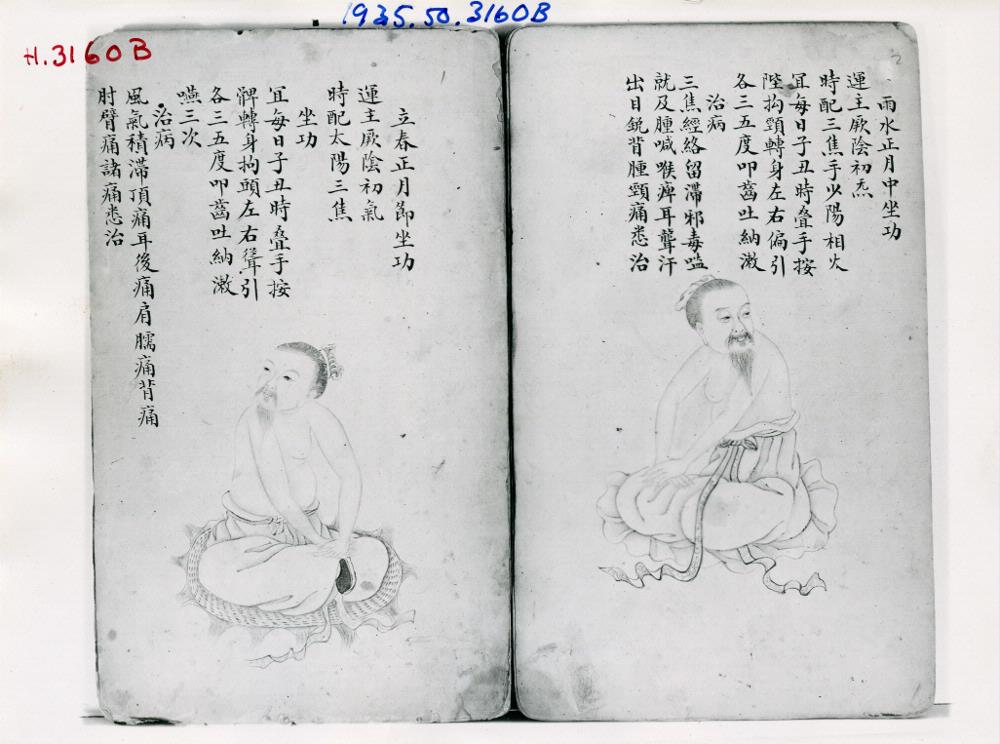 1935.50.3160B
H.3160B
2
雨水正月中坐功
運主厥陰初炁
時配三焦手少陽相火
冝每日子丑時叠手按
陛拘頸轉身左右偏引
各三五度叩齒吐納漱
治病
三焦經絡留滯邪毒嗌
就及腫喊喉痺耳聾汗
出日銳背腫頸痛悉治
立春正月節坐功
運主厥陰初氣
時配太陽三焦
坐功
冝每日子丑時叠手按
髀轉身拘頭左右聳引
各三五度叩齒吐納漱
嚥三次
治病
風氣積滯頂痛耳後痛肩臑痛背痛
肘臂痛諸痛悉治